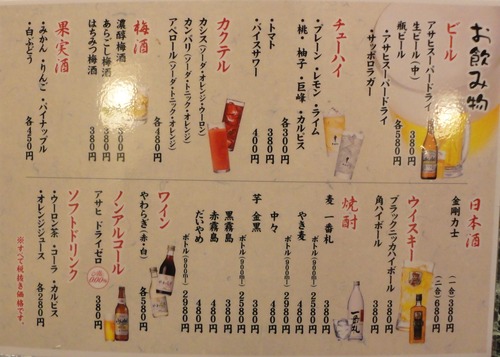 お飲み物
ビール
アサヒスーパードライ
生ビール(中) 380円
瓶ビール 各580円
・アサヒスーパードライ
・サッポロラガー
チューハイ
・プレーン・レモン・ライム
・桃・柚子・巨峰・カルピス 各300円
・トマト 380円
・バイスサワー 400円
カクテル
カシス(ソーダ・オレンジ・ウーロン)
カンパリ(ソーダ・トニック・オレンジ)
アペロール(ソーダ・トニック・オレンジ)
各480円
梅酒
濃醇梅酒 380円
あらごし梅酒 380円
はちみつ梅酒 380円
果実酒
・みかん・りんご・パイナップル
・白ぶどう 各450円
日本酒
金剛力士 (一合) 380円
(二合) 680円
ウイスキー
ブラックニッカハイボール 380円
角ハイボール 380円
焼酎
麦 一番札 380円
ボトル(900ml) 2580円
やき麦 480円
ボトル(900ml) 2980円
中々 480円
芋 金黒 380円
ボトル(900ml) 2580円
黒霧島 480円
赤霧島 480円
だいやめ 480円
ボトル(900ml) 2980円
ワイン
やわらぎ(赤・白) 各580円
ノンアルコール
アサヒ ドライゼロ 380円
ソフトドリンク
・ウーロン茶・コーラ・カルピス
・オレンジジュース 各280円
※すべて税抜き価格です。